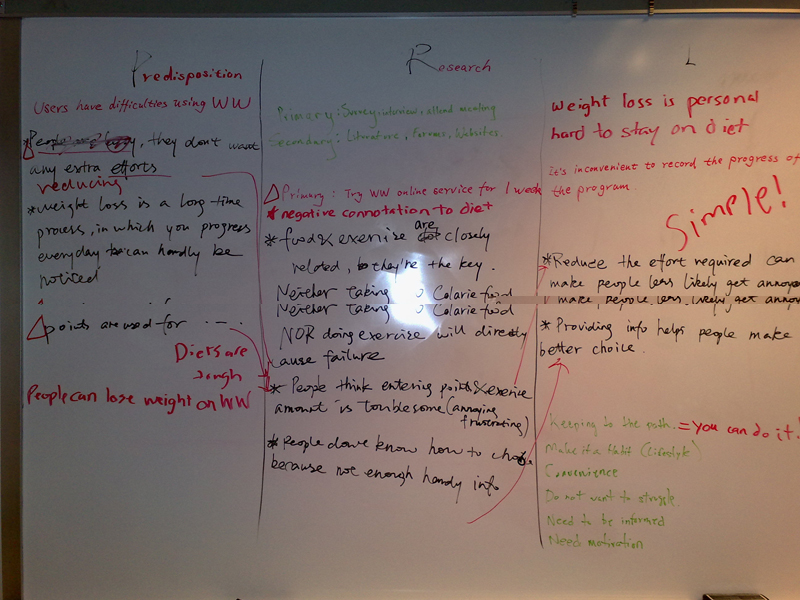 Predisposition
Users have difficulties using WW
they don't want
any extra efforts
reducing
*weight loss is a long-time
process, in which you progress
everyday can hardly be
noticed
points are used for ....
Diets are
tough
People can lose weight on WW
Research
Primary: Survey, interview, attend meeting
Secondary: Literature, Forums, Websites.
Primary: Try WW online service for 1 week
* negative connotation to diet
*food & exercise are closely
related, they're the key.
Neither taking Calorie food
Neither taking Calorie food
NOR doing exercise will directly
cause failure
* People think entering points & exercise
amount is toublesome (annoying
frustrating)
*People don't know how to
because not enough handy info
L
weight loss is personal
hard to stay on diet
It's inconvenient to record the progress of
the program.
Simple!
*Reduce the effort required can
make people less likely get annoye
make people less likely get annoye
*Providing info helps people make
better choice.
Keeping to the path. = you can do it!
Make it a habit (lifestyle)
Convenience
Do not want to struggle.
Need to be informed
Need motivation